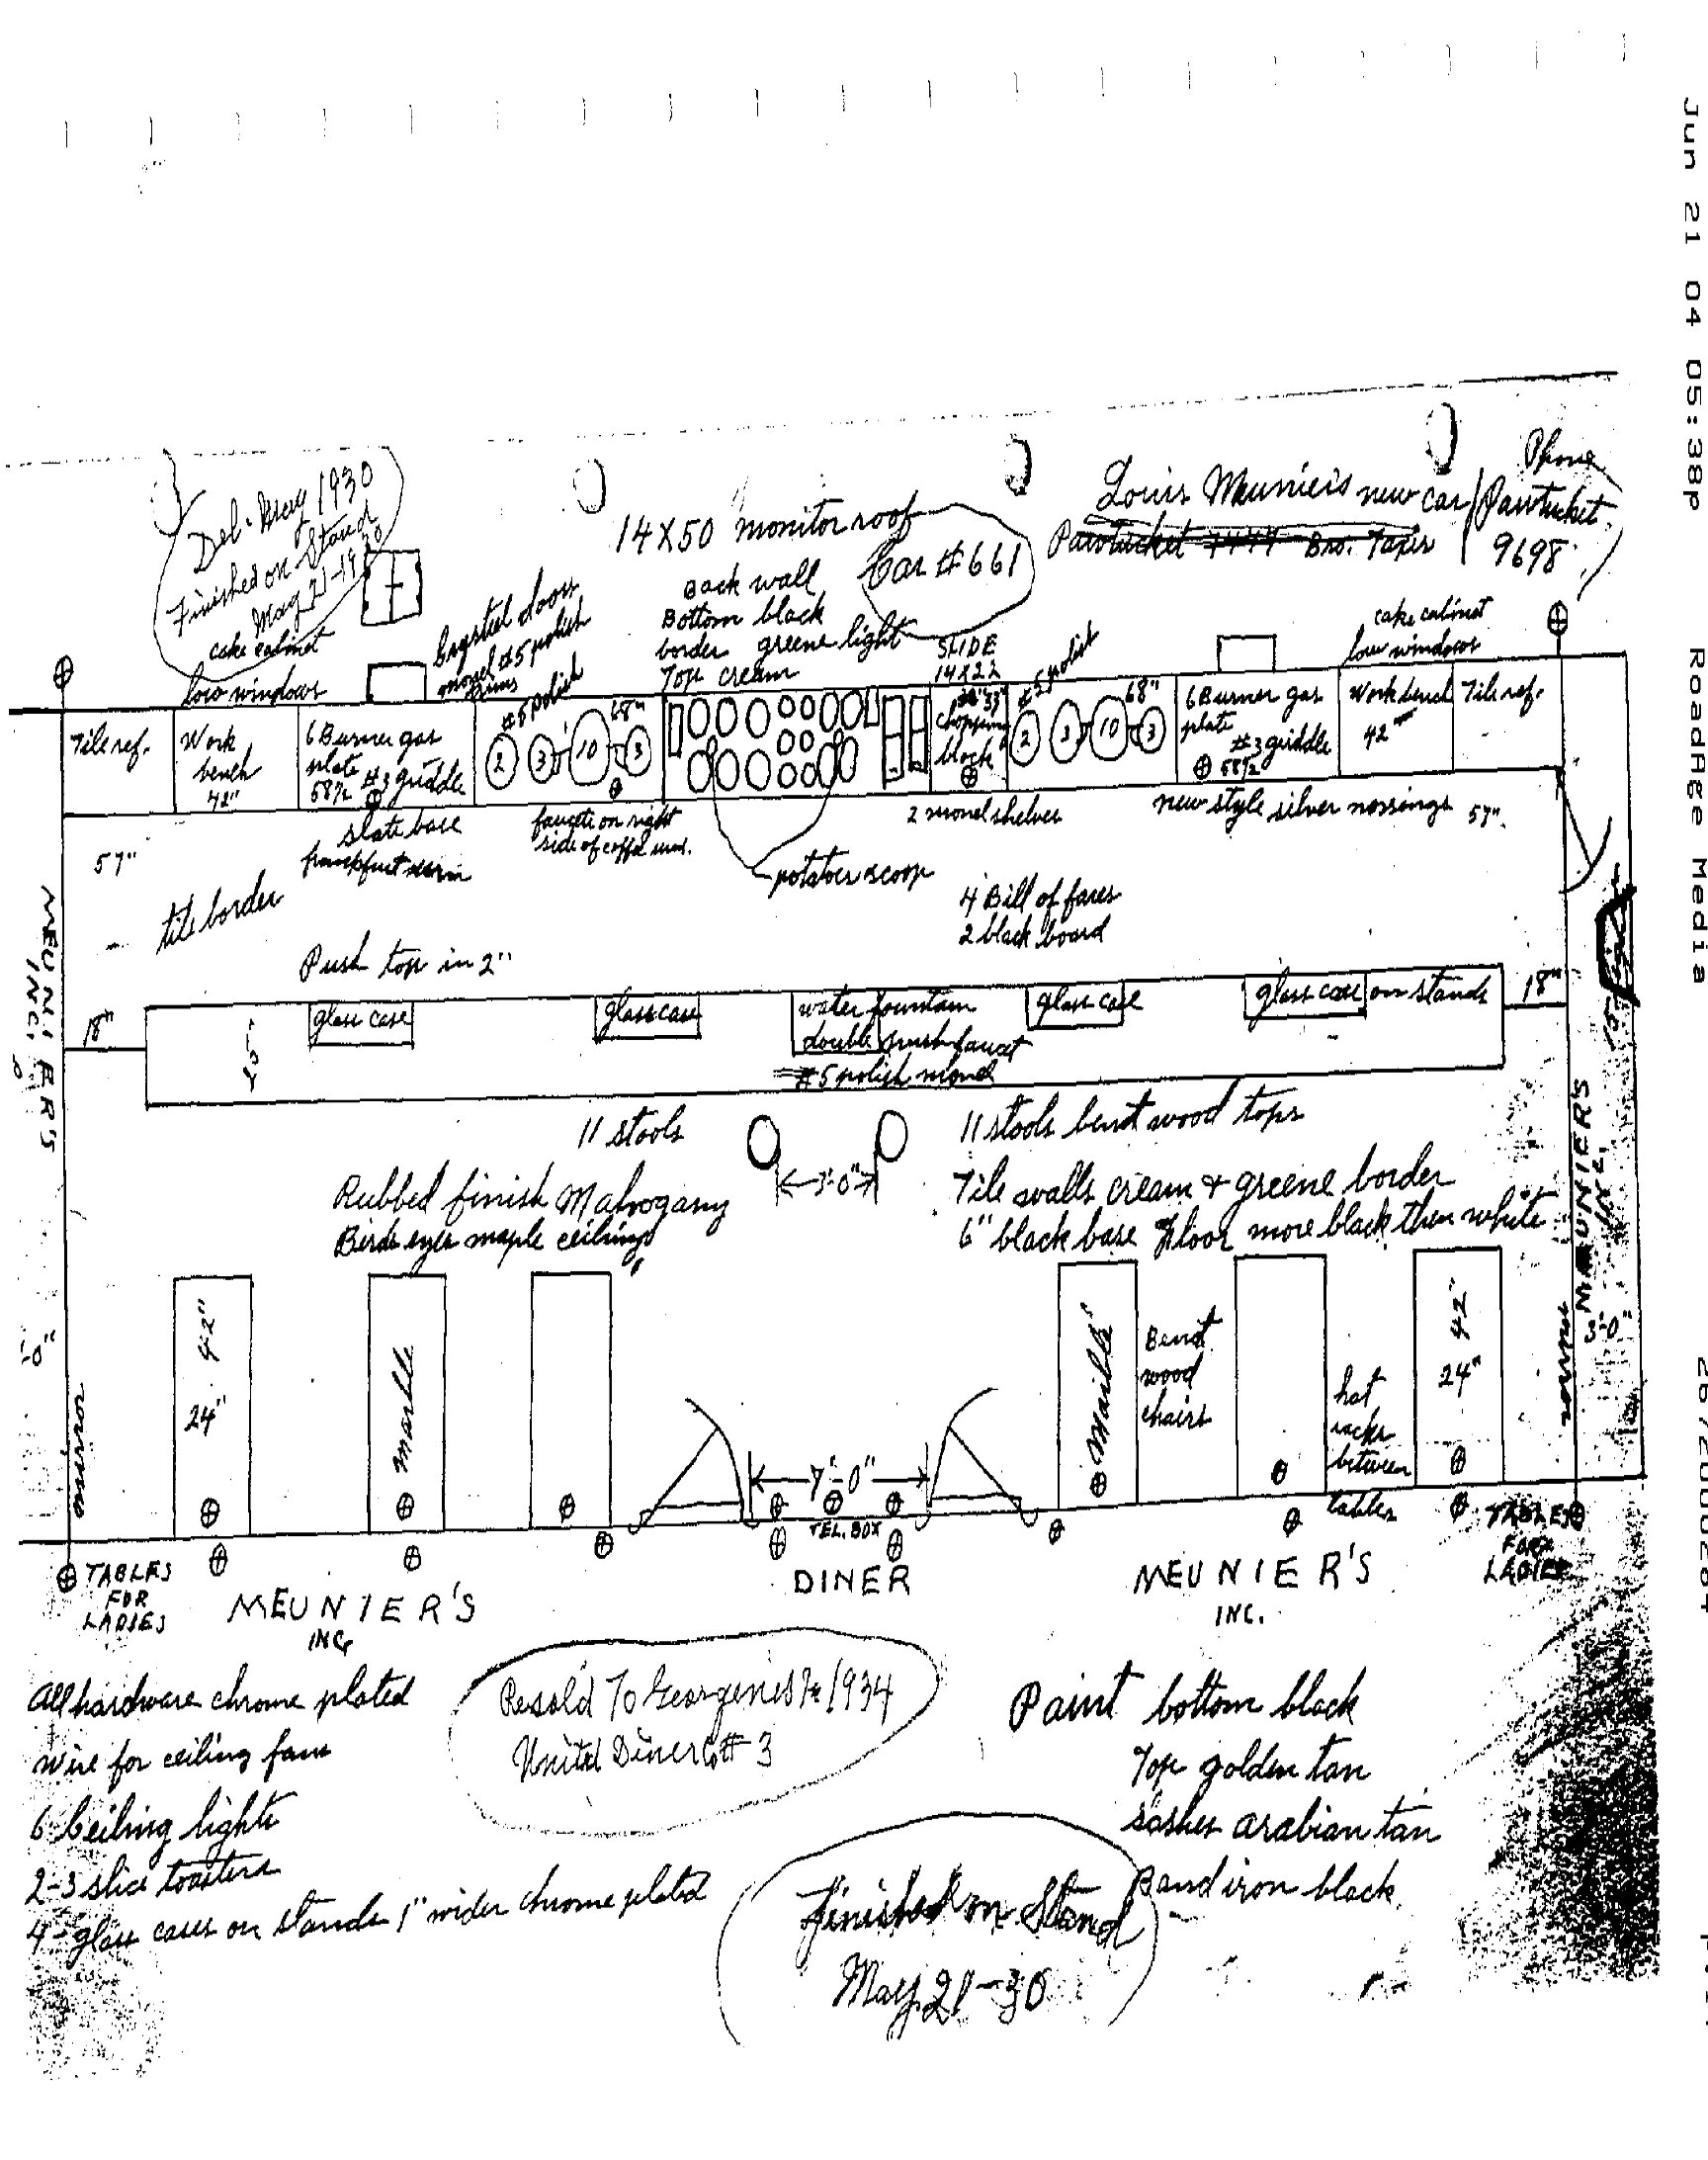 Jun 21 04 05:38p
Roadree Media
Del. May 1930
Finished on Stand
May 21-1930
14X50 monitor roof
Car #661
Louis Meunier's new car
Phone
Pawtucket
9698
Back wall
Bottom black
border greene light
Top cream
cake cabinet
low windows
monel #5 polish
#5 polish
68"
SLIDE
14X22
#5 polish
68"
cake cabinet
low windows
Tile ref.
Work
bench
42"
6 Burner gas
plate
58 1/2 #3 griddle
2
3
10
3
chopping
block
2
3
10
3
6 Burner gas
plate
#3 griddle
58 1/2
Work bench
42"
Tile ref.
slate base
faucets on right
side of coffee urns.
2 monel shelves
new style silver nossings
57"
57"
tile border
potatoes scoop
4 Bill of fares
2 black board
Push top in 2"
18"
glass case
glass case
water fountain
double push faucet
#5 polish monel
glass case
glass case on stands
18"
MEUNIER'S
INC.
11 stools
11 stools bent wood tops
3'-0"
Rubbed finish Mahogany
Birds eyes maple ceilings
Tile walls cream & greene border
6" black base Floor more black then white
MEUNIER'S
INC.
42"
24"
marble
marble
Bend
wood
chairs
hat
racks
between
tables
42"
24"
3'-0"
mirror
mirror
7'-0"
TEL. BOX
TABLES
FOR
LADIES
MEUNIER'S
INC
DINER
MEUNIER'S
INC.
TABLES
FOR
LADIES
All hardware chrome plated
wire for ceiling fans
6 Ceiling lights
2-3 slice toasters
4-glass cases on stands 1" wider chrome plated
Resold To Georgenes in 1934
United Diner Co # 3
Paint bottom black
Top golden tan
sashes arabian tan
Band iron black
Finished on Stand
May 21-30